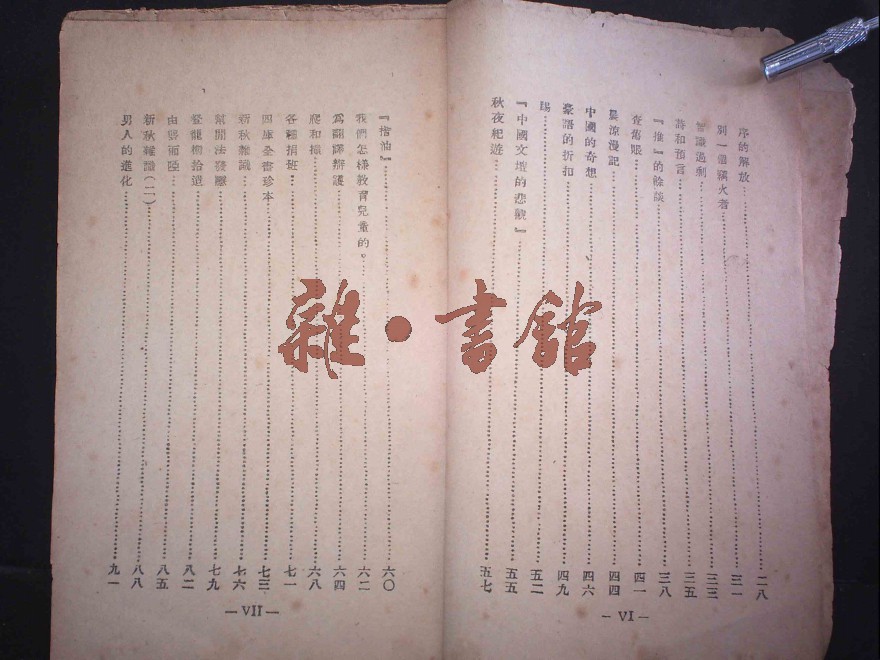 序的解放……二八
別一個竊火者……三一
智識過剩……三三
詩和預言……三五
『推』的餘談……三八
查舊賬……四一
晨涼漫記……四四
中國的奇想……四六
豪語的折扣……四九
踢……五二
『中國文壇的悲觀』……五五
秋夜紀遊……五七
— VI —
『揩油』……六〇
我們怎樣教育兒童的。……六二
爲翻譯辯護……六四
爬和撞……六八
各種捐班……七一
四庫全書珍本……七三
新秋雜識……七六
幫閒法發隱……七九
登龍術拾遺……八二
由聾而啞……八五
新秋雜識（二）……八八
男人的進化……九一
— VII —
雜·書館